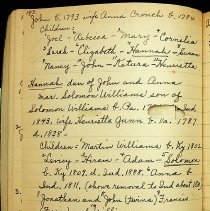 John b. 1793 wife Anna Crouch b. 1794
Children:
Joel - Rebecca - Mary - Cornelia
Sarah - Elizabeth - Hannah - Susan
Nancy - John - Katura - Henrietta
Hannah dau of John and Anna
mar. Solomon Williams son of
Solomon Williams b. Pa. Ind.
1893, wife Henrietta Gunn b. Va. 1787
d. 1858 -
Children: Martin Williams b. Ky 1802
Levicy - Hiram - Adam - Solomon
b. Ky 1807, d. Ind. 1888. Anna b
Ind. 1811, (shows removal to Ind about 1810)
Jonathan and John (twins) Francis